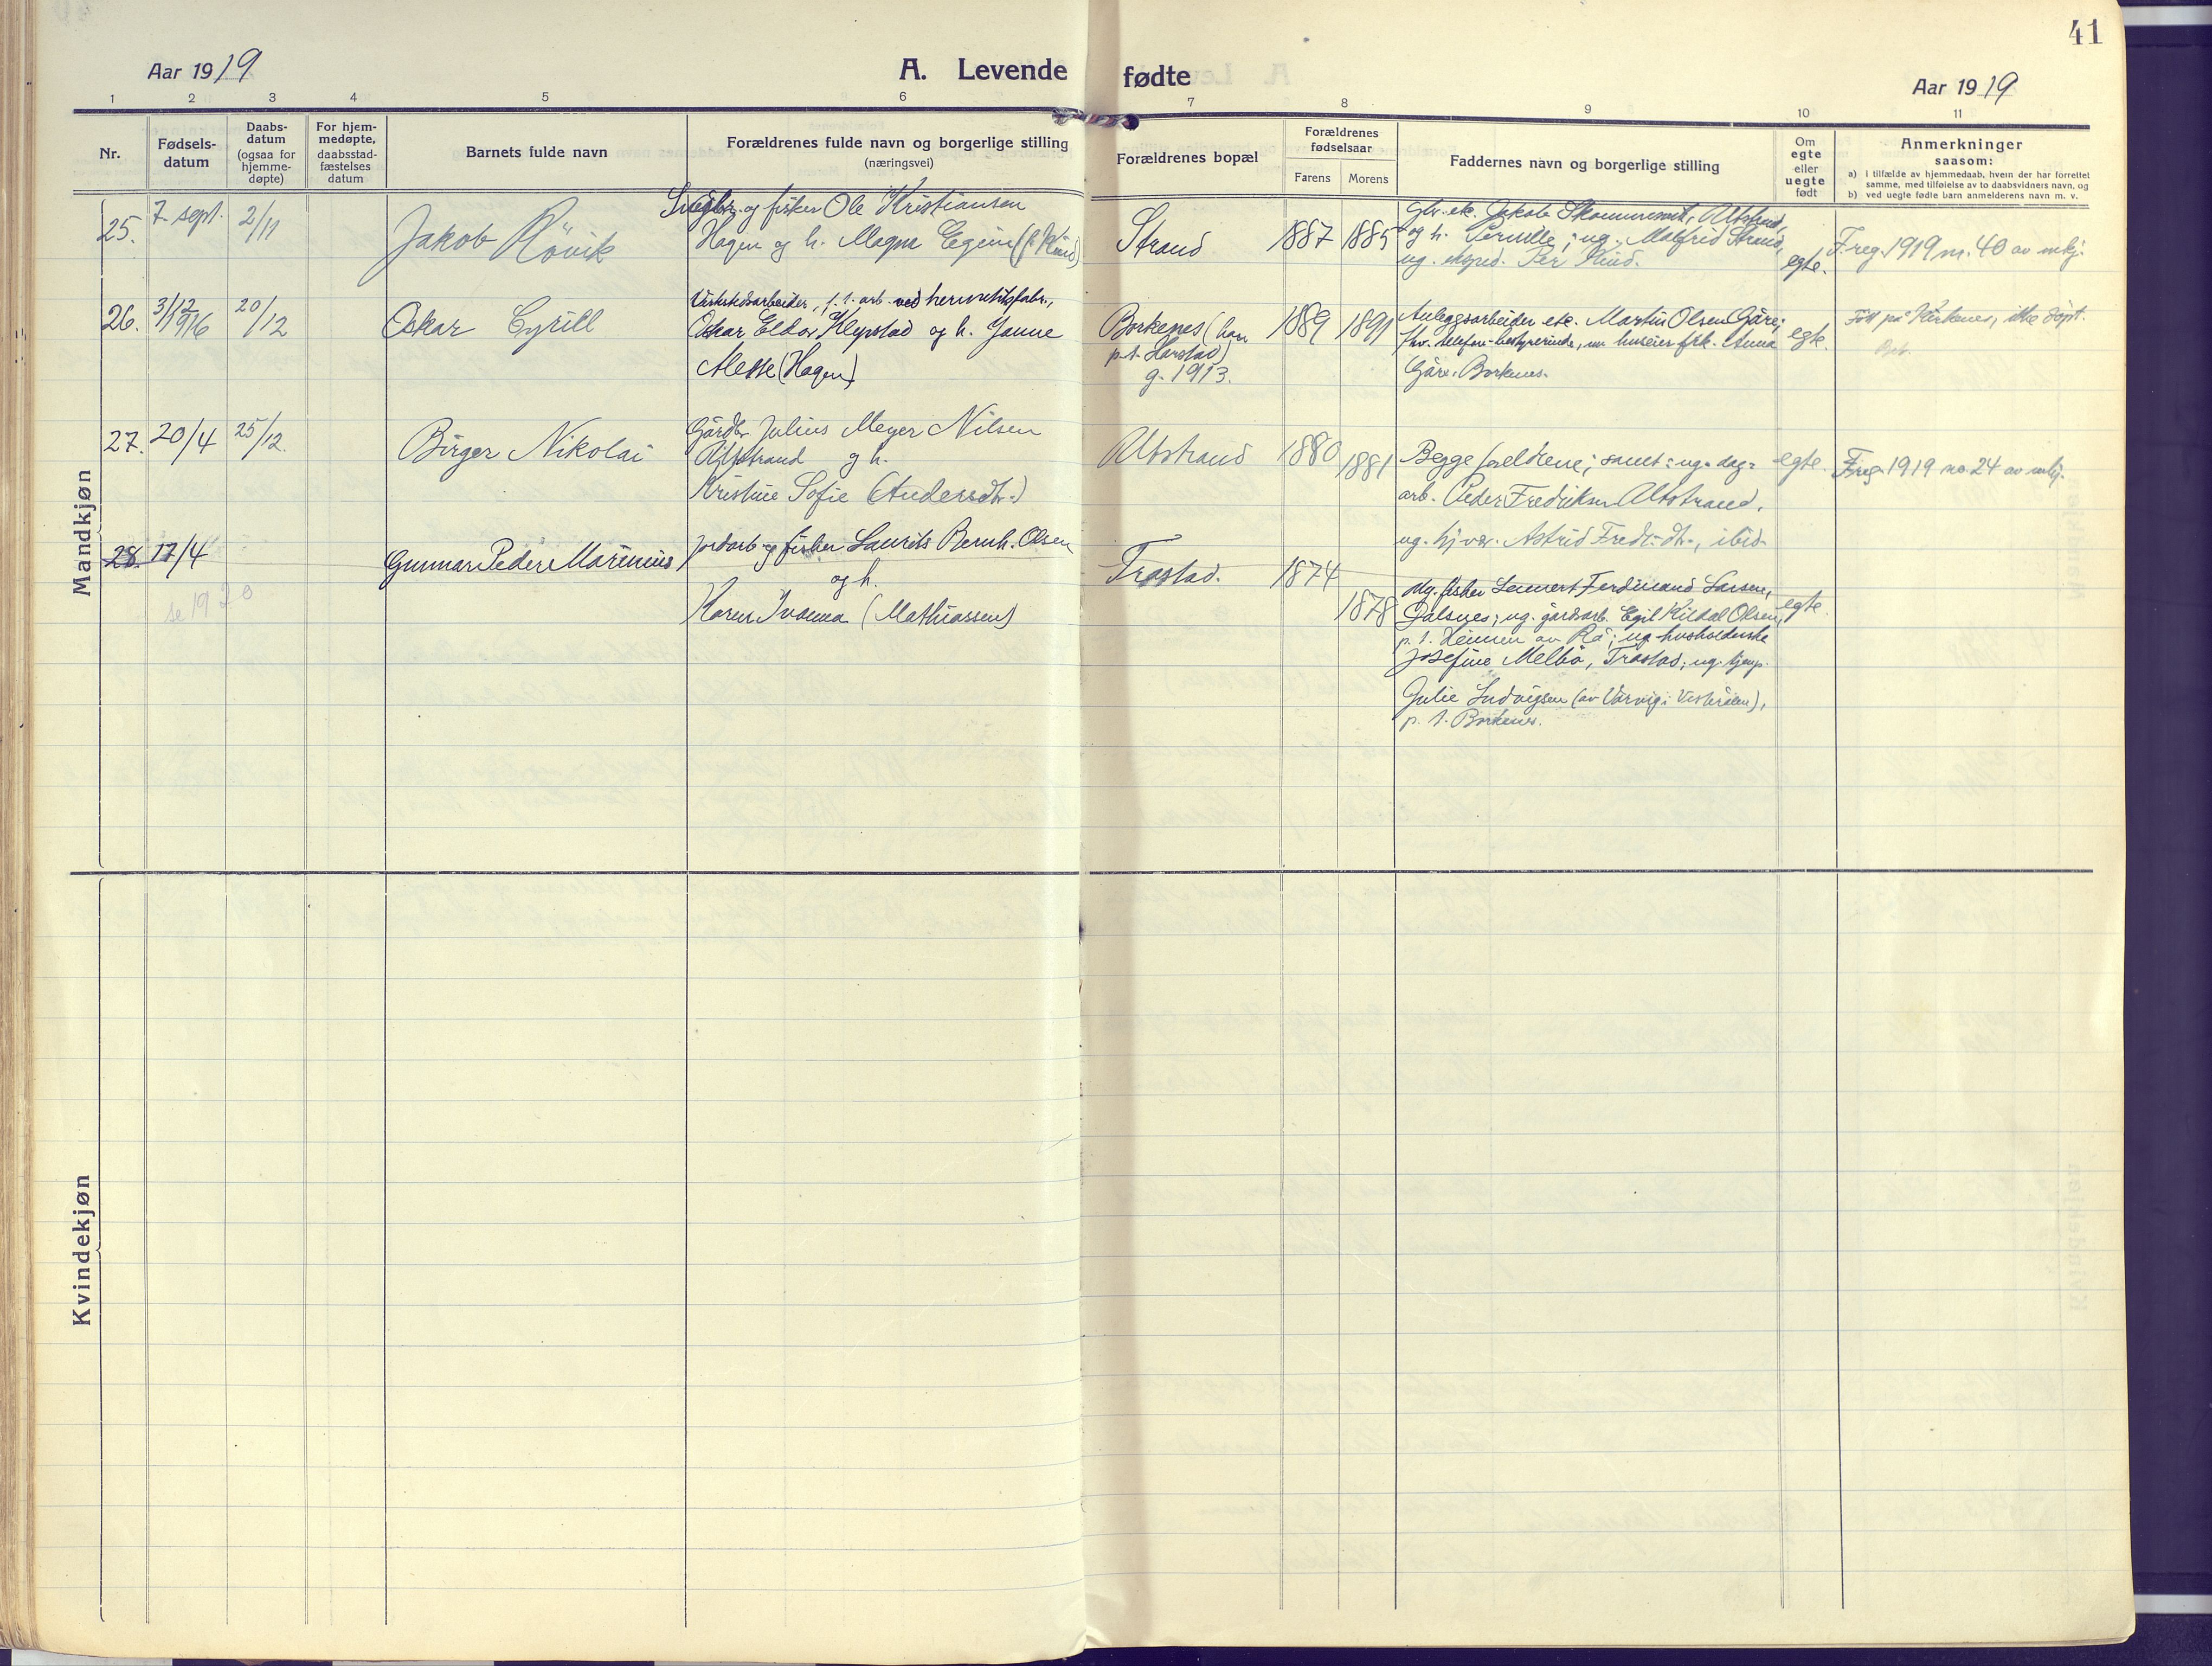 41
Aar 1919
A. Levende fødte
Aar 1919
1 2 3 4 5 6 7 8 9 10 11
Nr.
Fødsels-
datum
Daabs-
datum
(ogsaa for
hjemme-
døpte)
For hjem-
medøpte,
daabsstad-
fæstelses
datum
Barnets fulde navn
Forældrenes fulde navn og borgerlige stilling
(næringsvei)
Forældrenes bopæl
Forældrenes
fødselsaar
Farens Morens
Faddernes navn og borgerlige stilling
Om
egte
eller
uegte
født
Anmerkninger
saasom:
a) i tilfælde av hjemmedaab, hvem der har forrettet
samme, med tilføielse av to daabsvidners navn, og
b) ved uegte fødte barn anmelderens navn m. v.
Mandkjøn
25. 7 sept. 2/11
Jakob Rövik
og fisker Ole Kristiansen
Hagen og h. Magna
Strand
1887 1885
Jakob Altstrand,
og h. Pernille; ug. Malfrid Strand,
ug. eksped. Per
egte.
Freg. 1919 nr. 40 av mkj.
26. 3/12 1916 20/12
Oskar Cyrill
Verkstedsarbeider, f. t. arb. ved hermetikfabr.,
Oskar Eldor Klepstad og h. Janne
Alette (Hagen)
Borkenes (han
p.t. Harstad)
g. 1913.
1889 1891
Anleggsarbeider etc. Martin Olsen Gåre;
fhv. telefon-bestyrerinde, nu huseier frk. Anna
Gåre, Borkenes.
egte.
Født på Kirkenes, ikke døpt.
27. 20/4 25/12.
Birger Nikolai
Gårdbr. Julius Meyer Nilsen
Altstrand og h.
Kristine Sofie (Andersdtr.)
Altstrand
1880 1881
Begge foreldrene; samt: ug. dag-
arb. Peder Fredriksen Altstrand,
ug. Astrid Fredr.dtr., ibid.
egte.
Freg. 1919 no. 24 av mkj.
28. 17/4
se 1920
Gunnar Peder Marinius
Jordarb. og fisker Laurits Bernh. Olsen
og h.
Karen Ivanna (Mathiassen)
Trastad.
1874 1878
Ug. fisker Lennert Ferdinand Larsen,
ug. gårdsarb. Egil Kildal Olsen,
p. t. av Rå; ug. husholderske
Josefine Melbö, Trastad; ug. tjenp.
Julie Ludvigsen (av Vesterålen),
p. t. Borkenes.
egte.
Kvindekjøn